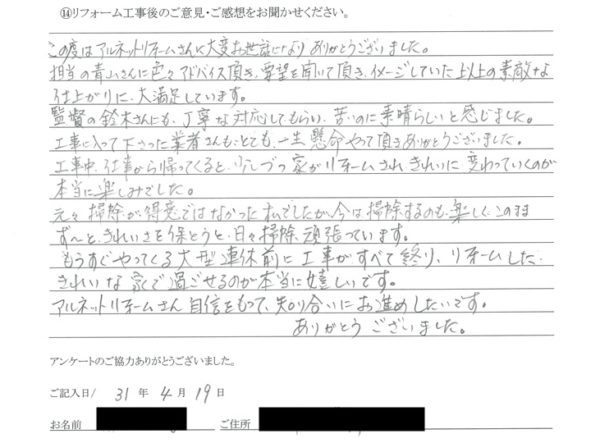 ⑭リフォーム工事後のご意見・ご感想をお聞かせください。
この度はアルネットリフォームさんに大変お世話になり ありがとうございました。
担当の青山さんに色々アドバイス頂き、要望を聞いて頂き、イメージしていた以上の素敵な
仕上がりに、大満足しています。
監督の鈴木さんにも、丁寧な対応してもらい、若いのに素晴らしいと感じました。
工事に入って下さった業者さんも、とても、一生懸命やって頂きありがとうございました。
工事中、仕事から帰ってくると、少しづつ家がリフォームされきれいに変わっていくのが
本当に楽しみでした。
元々掃除が得意ではなかった私でしたが、今は掃除するのも、楽しく、このまま
ず〜と、きれいさを保とうと、日々掃除頑張っています。
もうすぐやってくる大型連休前に工事がすべて終り、リフォームした、
きれいな家で過ごせるのが本当に嬉しいです。
アルネットリフォームさん自信をもって、知り合いにお進めしたいです。
ありがとうございました。
アンケートのご協力ありがとうございました。
ご記入日/ 31 年 4 月 19 日
お名前 ご住所